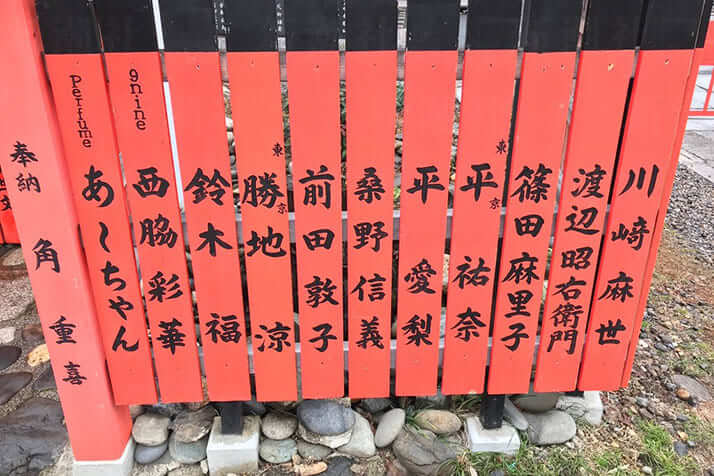 川崎麻世
渡辺昭右衛門
篠田麻里子
東京 平祐奈
平愛梨
桑野信義
前田敦子
東京 勝地涼
鈴木福
9nine 西脇彩華
Perfume あ～ちゃん
奉納 角重喜